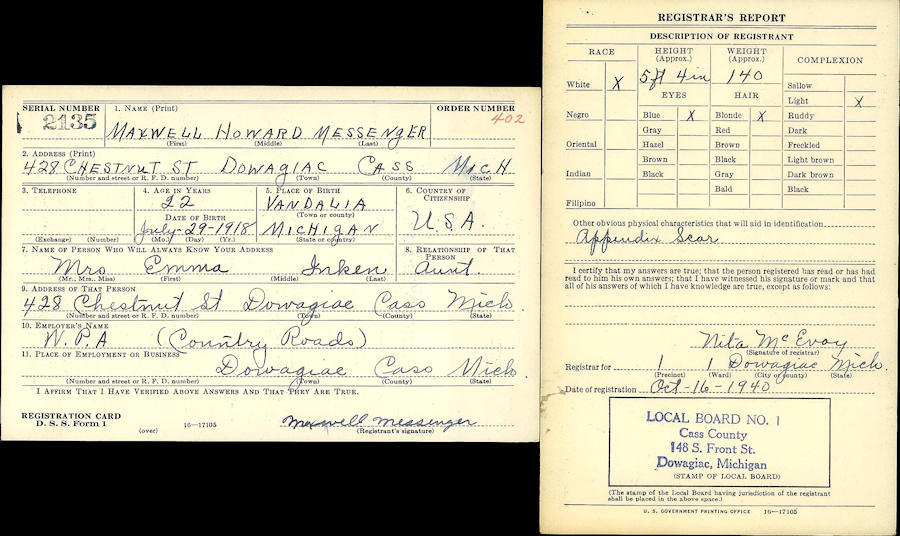 SERIAL NUMBER 1. NAME (Print) ORDER NUMBER
2135 MAXWELL HOWARD MESSENGER 402
(First) (Middle) (Last)
2. ADDRESS (Print)
428 CHESTNUT ST DOWAGIAC CASS MICH
(Number and street or R. F. D. number) (Town) (County) (State)
3. TELEPHONE 4. AGE IN YEARS 5. PLACE OF BIRTH 6. COUNTRY OF CITIZENSHIP
22 VANDALIA
(Town or county)
DATE OF BIRTH U.S.A.
July-29-1918 MICHIGAN
(Exchange) (Number) (Mo.) (Day) (Yr.) (State or country)
7. NAME OF PERSON WHO WILL ALWAYS KNOW YOUR ADDRESS 8. RELATIONSHIP OF THAT PERSON
Mrs Emma Inken Aunt.
(Mr., Mrs., Miss) (First) (Middle) (Last)
9. ADDRESS OF THAT PERSON
428 Chestnut St Dowagiac Cass Mich
(Number and street or R. F. D. number) (Town) (County) (State)
10. EMPLOYER'S NAME
W.P.A (Country Roads)
11. PLACE OF EMPLOYMENT OR BUSINESS
Dowagiac Cass Mich
(Number and street or R. F. D. number) (Town) (County) (State)
I AFFIRM THAT I HAVE VERIFIED ABOVE ANSWERS AND THAT THEY ARE TRUE.
REGISTRATION CARD
D. S. S. Form 1 16—17105 Maxwell Messenger
(over) (Registrant's signature)
REGISTRAR'S REPORT
DESCRIPTION OF REGISTRANT
RACE HEIGHT (Approx.) WEIGHT (Approx.) COMPLEXION
White X 5 ft 4 in 140 Sallow
EYES HAIR Light X
Negro Blue X Blonde X Ruddy
Gray Red Dark
Oriental Hazel Brown Freckled
Brown Black Light brown
Indian Black Gray Dark brown
Bald Black
Filipino
Other obvious physical characteristics that will aid in identification
Appendix Scar
I certify that my answers are true; that the person registered has read or has had
read to him his own answers; that I have witnessed his signature or mark and that
all of his answers of which I have knowledge are true, except as follows:
Nita McEvoy
(Signature of registrar)
Registrar for 1 1 Dowagiac Mich.
(Precinct) (Ward) (City or county) (State)
Date of registration Oct-16-1940
LOCAL BOARD NO. 1
Cass County
148 S. Front St.
Dowagiac, Michigan
(STAMP OF LOCAL BOARD)
(The stamp of the Local Board having jurisdiction of the registrant
shall be placed in the above space.)
U. S. GOVERNMENT PRINTING OFFICE 16—17105